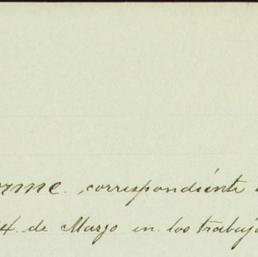 orme. correspondiénte
4. de Marzo en los trabaj